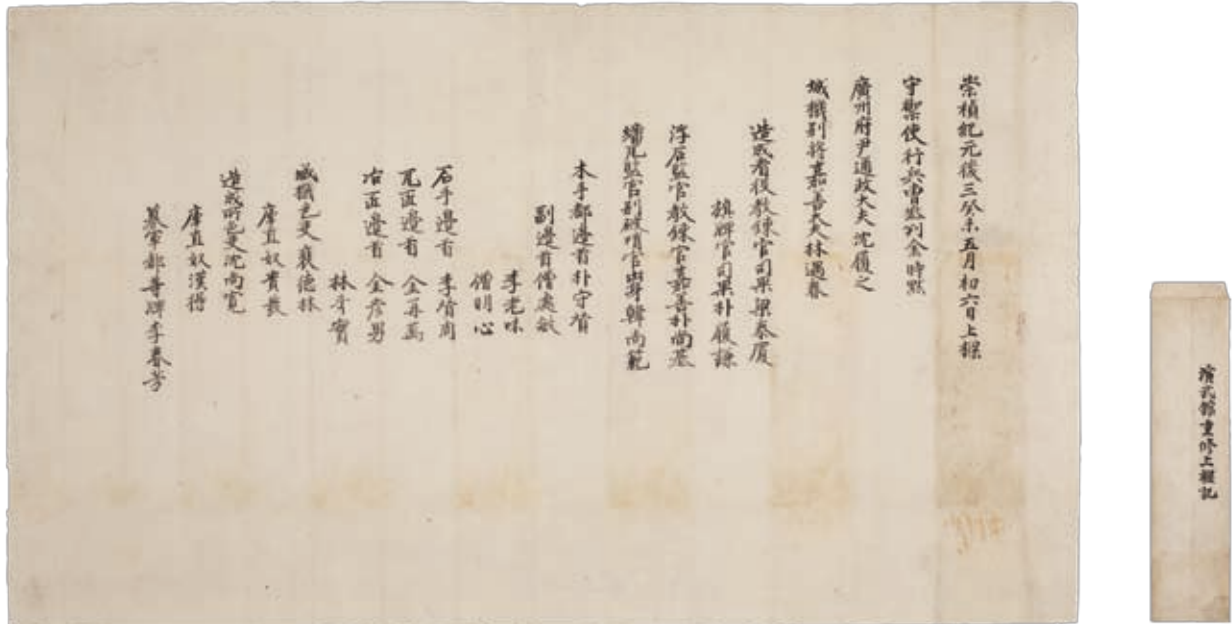 崇禎紀元後三癸未五月初六日上樑
守禦使行兵曹叅判金時默
廣州府尹通政大夫沈履之
城機別將嘉善大夫林遇春
造成看役教鍊官司果梁泰廈
旗牌官司果朴履謙
浮石監官教鍊官嘉善朴尚基
燔瓦監官別破陣官出身韓尚範
木手都邊首朴守質
副邊首僧處敏
李老味
僧明心
石手邊首 李質周
瓦匠邊首 金再萬
冶匠邊首 金彦男
林才實
城機色吏 裵德林
庫直奴貴發
造成所色吏沈尚寬
庫直奴漢得
募軍都等牌李春芳
演武館重修上樑記